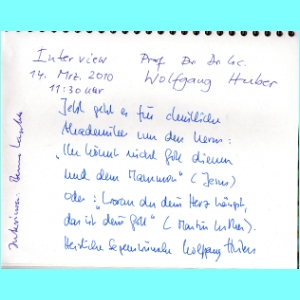 Interview Prof Dr. Dr. h.c.
14. Mrz. 2010 Wolfgang Huber
11:30 Uhr
Jetzt geht es für christliche
Akademiker um den Kern:
„Ihr könnt nicht Gott dienen
und dem Mammon" (Jesus)
oder: „Woran du dein Herz hängst,
das ist dein Gott" (Martin Luther).
Herzliche Segenswünsche Wolfgang Huber
Interview: